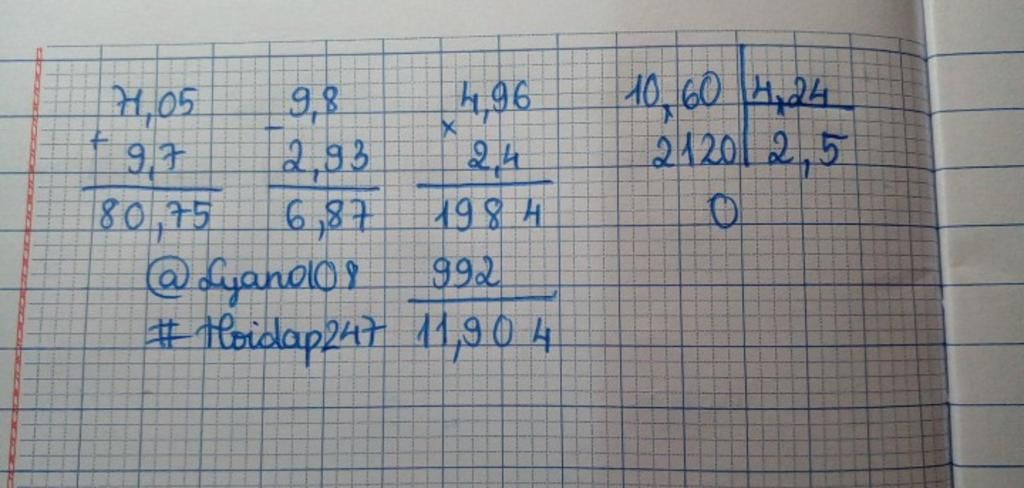 71,05 9,8 4,96 10,60 4,24
+ 9,7 - 2,93 x 2,4 2120 2,5
80,75 6,87 198 4 0
@ Lyano108 992
# Hoidap247 11,90 4